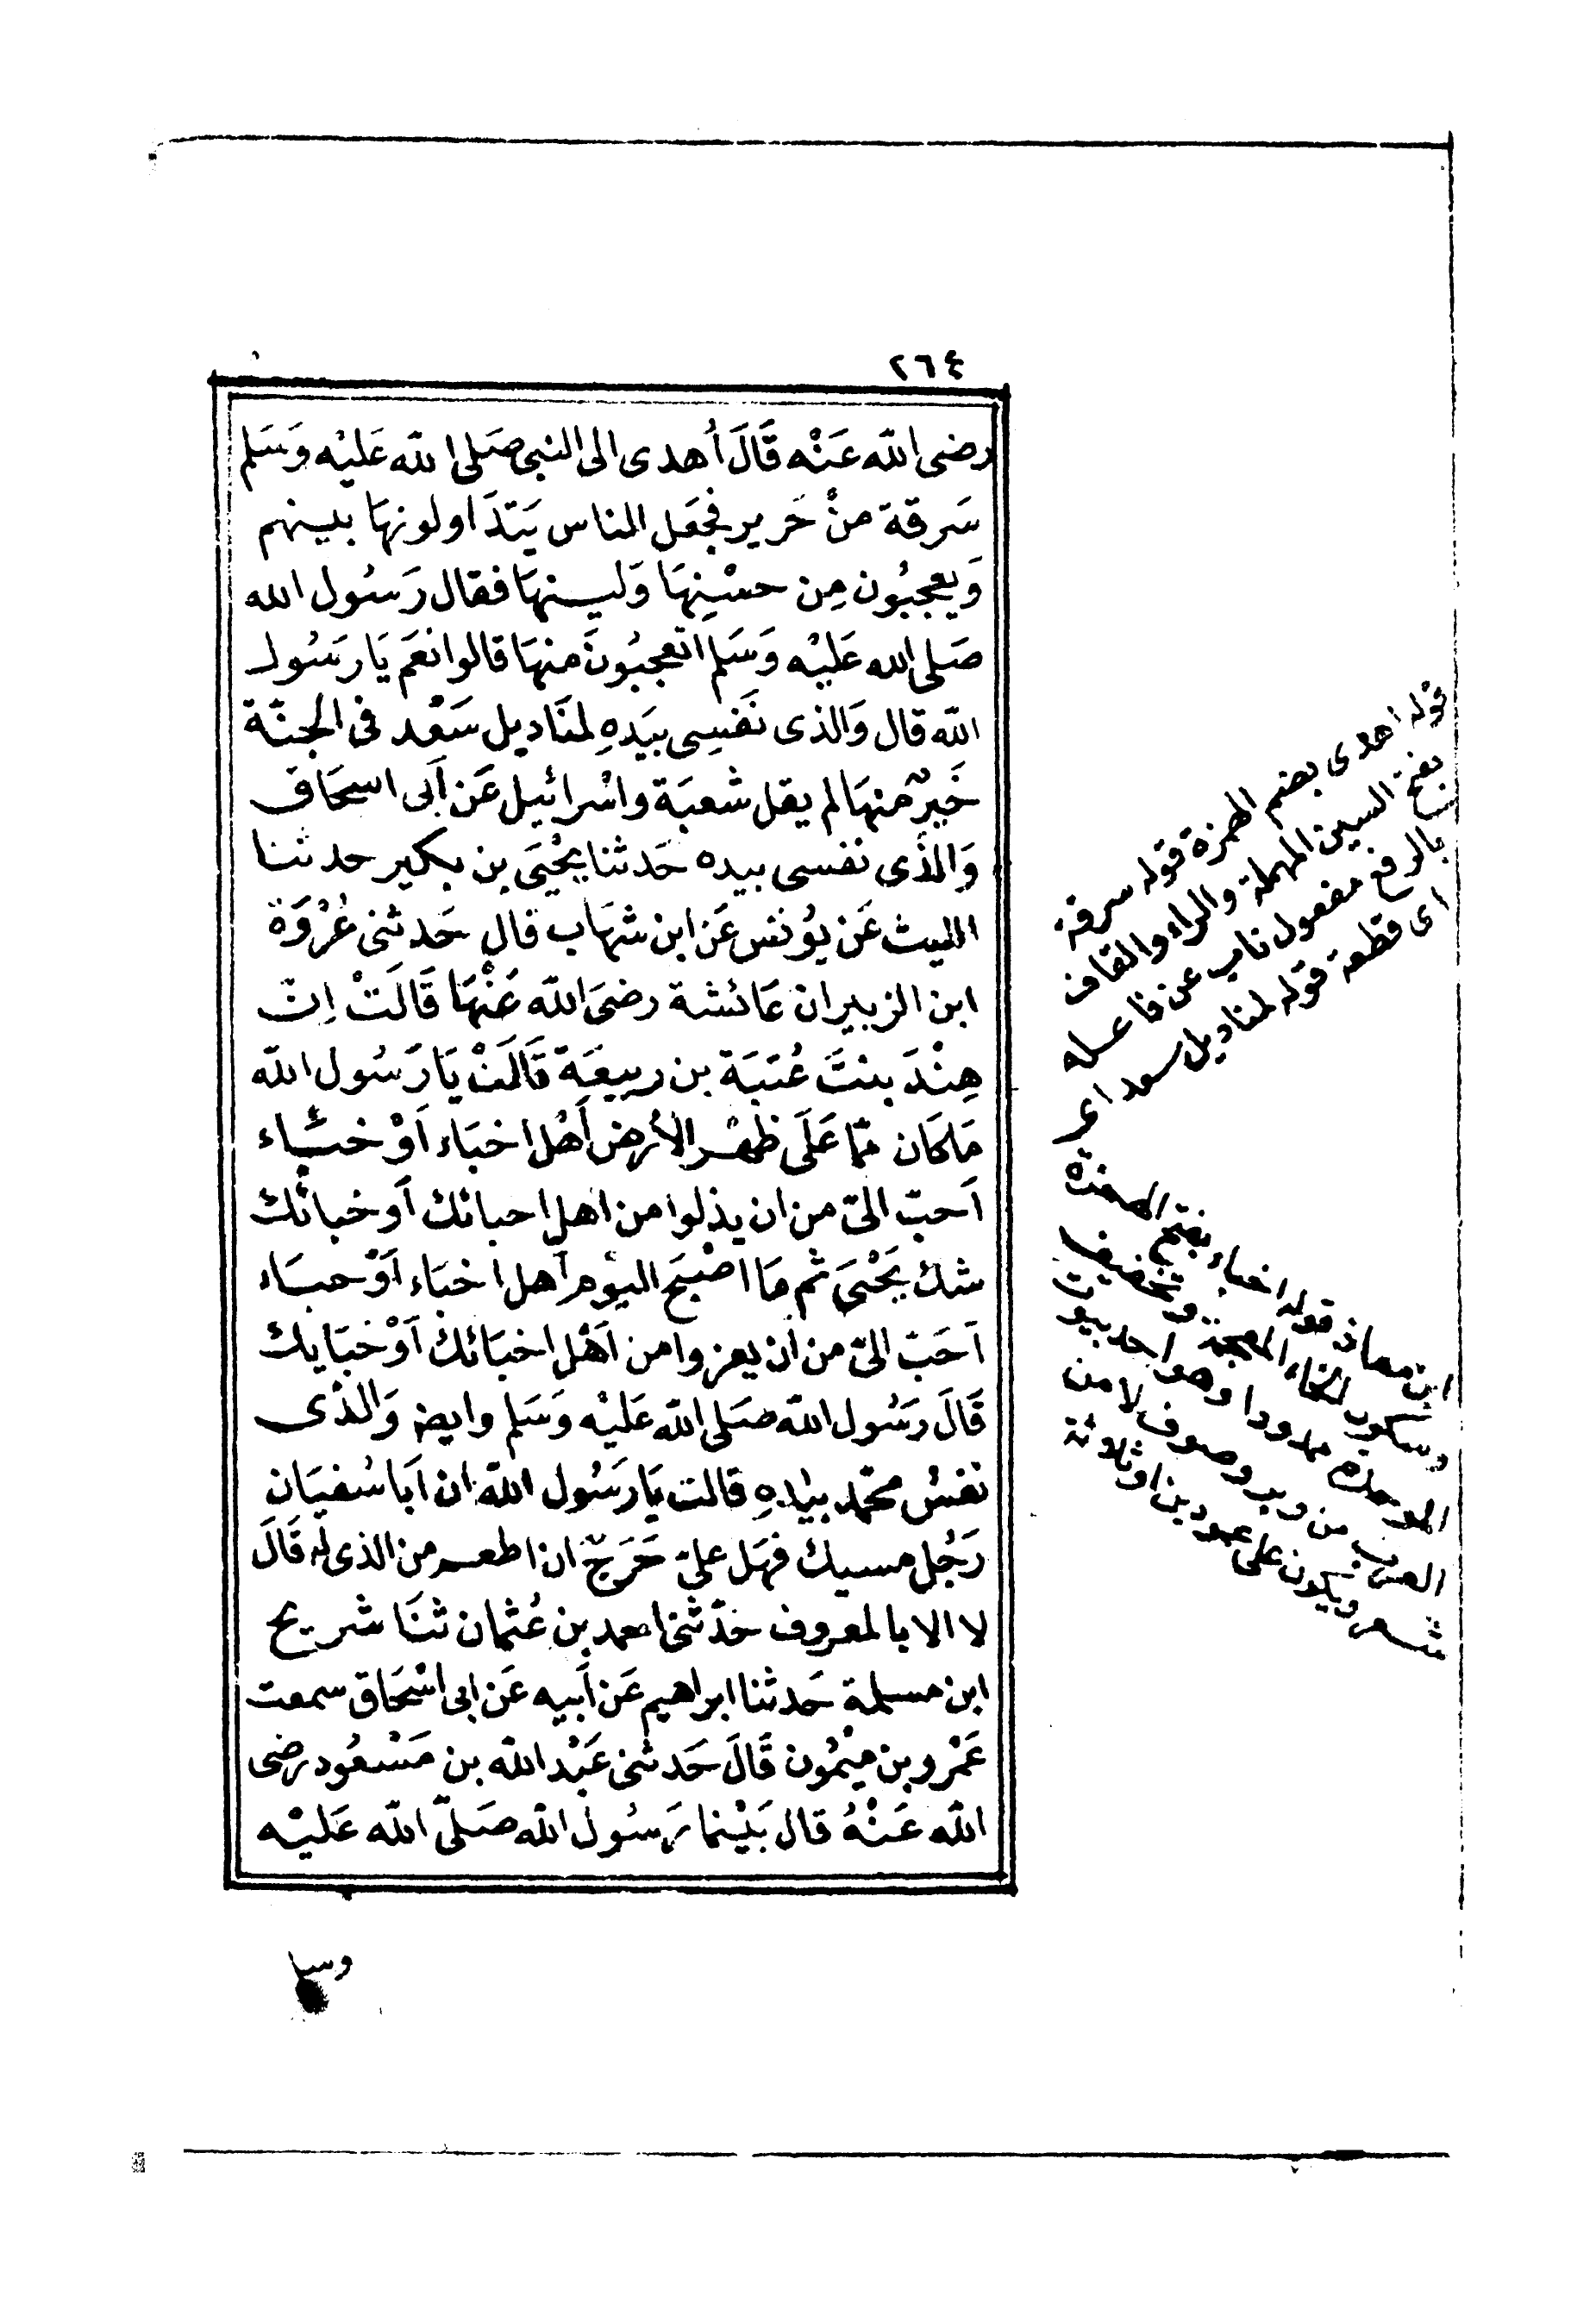 ٢٦٤
رضى الله عَنْه قَالَ أُهدى الى النبى صَلى الله عَليْه وَسَلم
سَرقة منْ حَرير فجعَل الناس يَتدَاولونهَا بينهم
وَيعجبُون مِن حسْنِهَا وَلينهَا فقال رَسُول الله
صَلى الله عَليْه وَسَلم اتعجبُونَ منهَا قالوا نعَم يَا رَسُول
الله قال وَالذى نَفسِى بيَدهِ لمنَاديل سَعْد فى الجنَّة
خَيرٌ منهَا لم يقل شعبَة واسْرائيل عَن أبى اسحَاق
وَالذى نفسى بيده حَدثنا يحْيَى بن بكير حدثنا
الليث عَن يوُنس عَن ابن شهَاب قال حَدثنى عُرْوَة
ابن الزبير ان عَائشة رضىَ الله عَنْهَا قَالَتْ إن
هِنْدَ بنتَ عُتبَة بن ربيعَة قَالَتْ يَا رَسُول الله
مَا كَان ممّا عَلَى ظهْر الأرض أهْل اخبَاء اَوْ خبَاء
اَحبّ الىّ من ان يذلوا من اهل احبائك اَو خبائك
شك يَحْيَى ثم مَا اصْبَح اليوم اَهل اخبَاء اَوْ خبَاء
اَحَبّ الىّ من اَن يعزوا من اَهْل اخبَائك اَوْ خبَايك
قَالَ رَسُول الله صَلى الله عَليْه وَسَلم وايضا وَالذى
نفسُ محمّد بيَدهِ قالت يَا رَسُول الله ان اَبَا سُفيَان
رَجُل مسيك فهَل علىّ حَرَجٌ ان اطعم من الذى له قَالَ
لا الا بالمعروف حَدّثنى احمد بن عُثمان ثنَا شريح
ابن مسلمة حَدثنا ابراهيم عَن أبيه عَن ابى اسْحَاق سمعت
عَمْرو بن ميْمُون قَالَ حَدثنى عَبْد الله بن مَسْعُود رضى
الله عَنْهُ قال بَيْنما رَسُول الله صَلىّ الله عَليْه
وسلم
قوله اهدى بضم الهمزة قوله سرقة
بفتح السين المهملة والراء والقاف
بالرفع مفعول ناب عن فاعله
اى قطعة قوله لمناديل سعد اى
ابن معاذ قوله اخباء بفتح الهمزة
وسكون الخاء المعجمة وتخفيف
الموحدة ممدودا وهو احد بيوت
العرب من وبر وصوف لا من
شعر ويكون على عمودين او ثلاثة